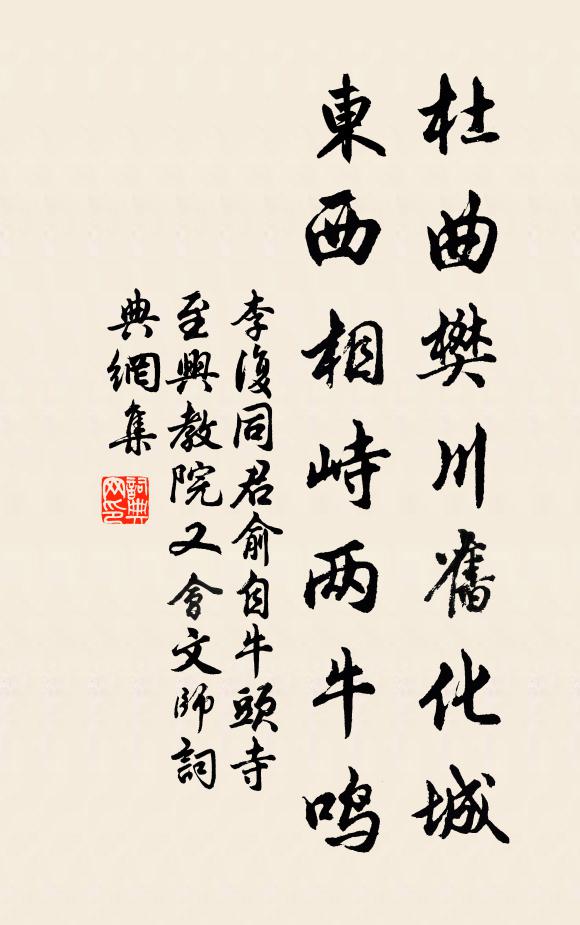 杜曲樊川舊化城
東西相峙两牛鸣
李復同君俞自牛頭寺
至興教院又會文師詞
典網集
詞典网印